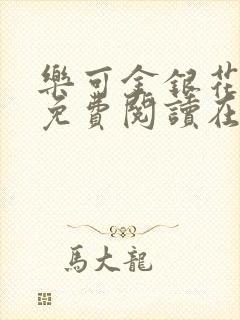 樂可金銀花
免費閱讀在
馬大龍